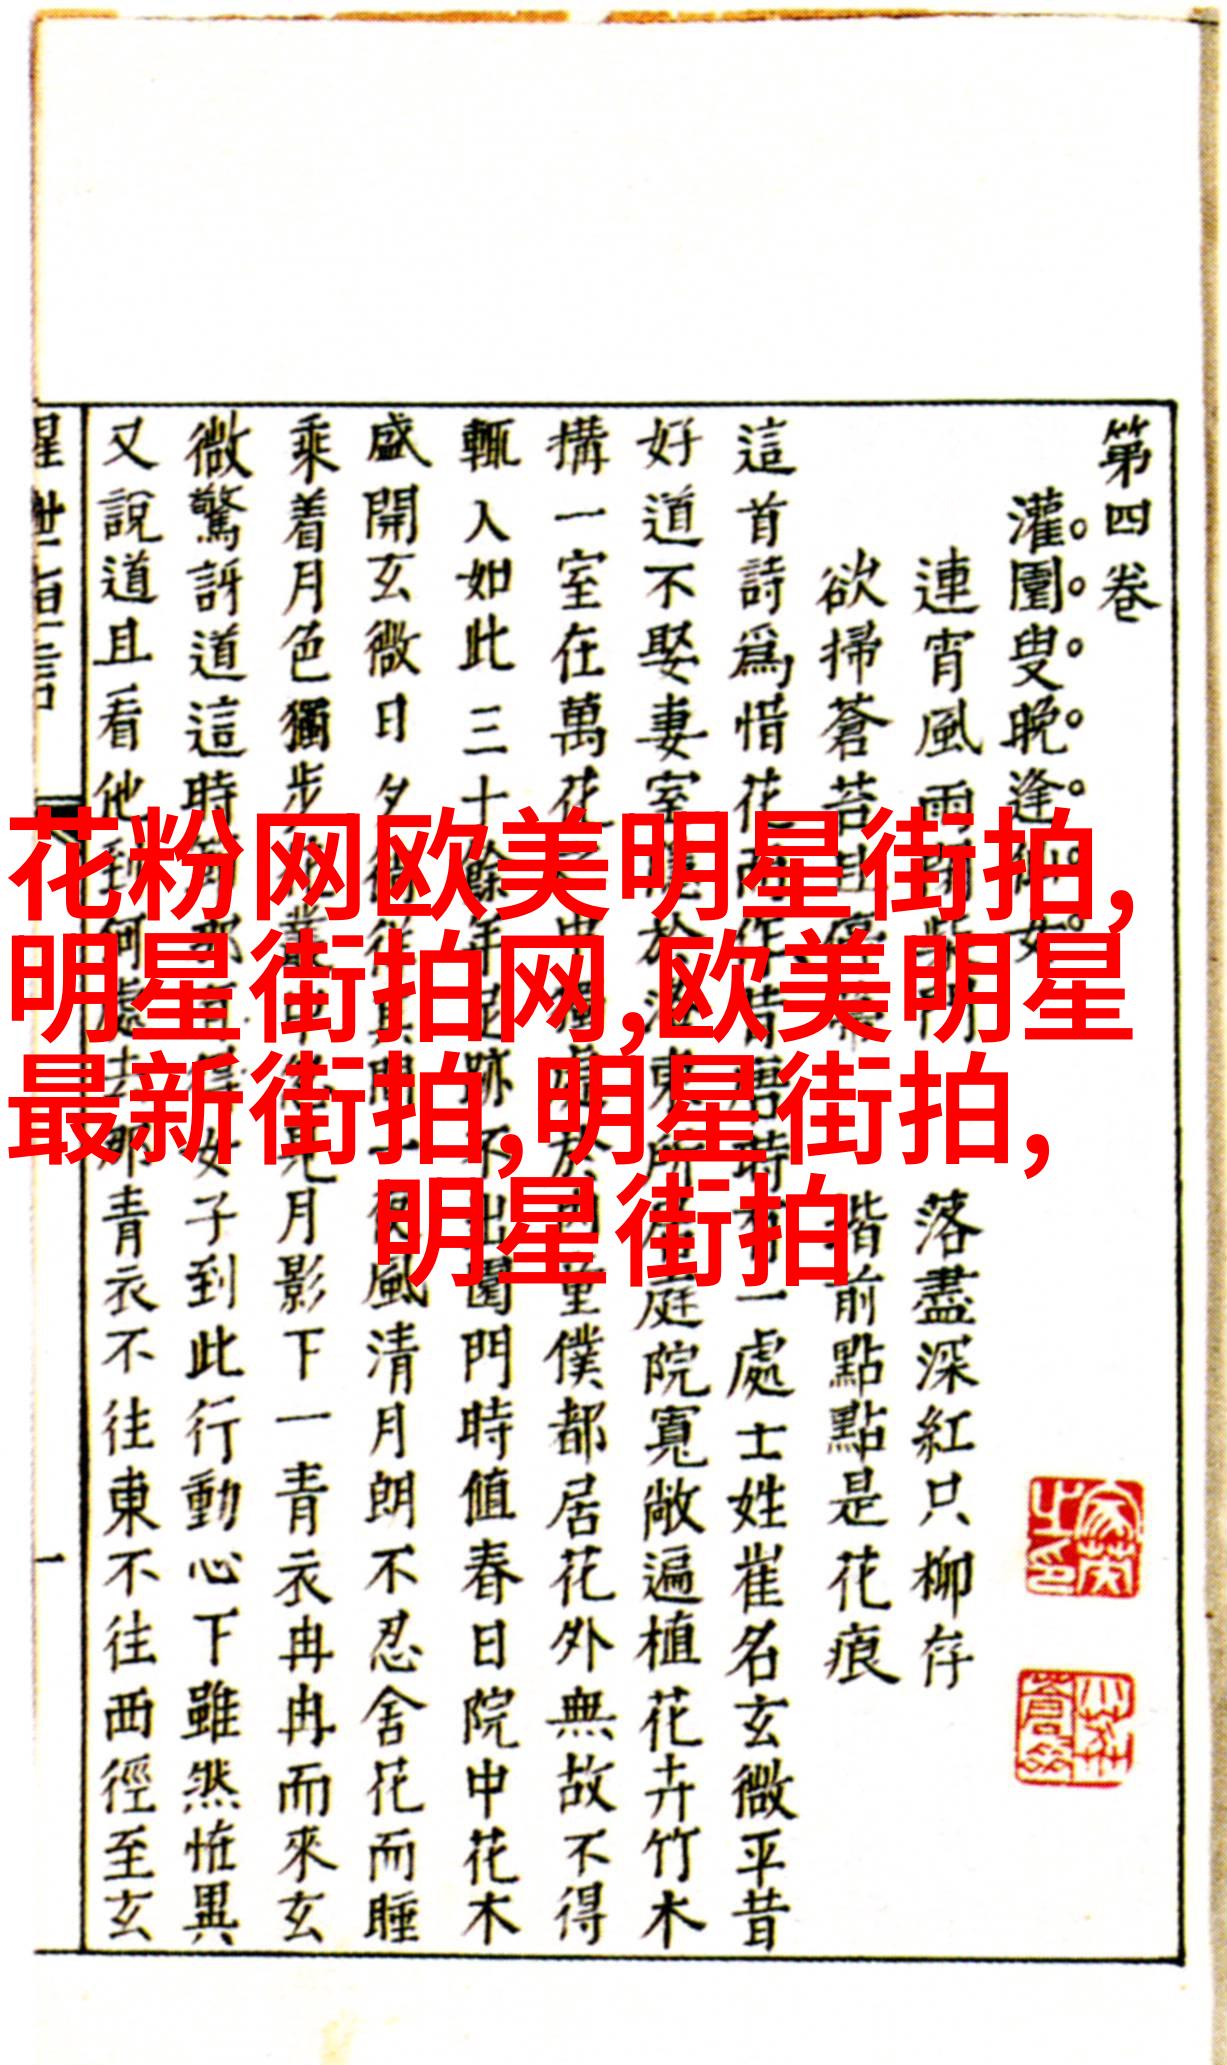 花粉网欧美明星街拍,
明星街拍网,欧美明星
最新街拍,明星街拍,
明星街拍
第四卷
灌園叟晚逢女
連宵風雨閉柴門 落盡深紅只柳存
欲掃蒼苔且停 階前點點是花痕
這首詩爲惜花而作昔唐時有一處士姓崔名玄微平昔
好道不娶妻室隱於東所居庭院寬敞遍植花卉竹木
搆一室在萬花中獨處於童僕都居花外無故不得
輒入如此三十餘年足跡不出園門時值春日院中花木
盛開玄微日夕徜徉其間一夜風清月朗不忍舍花而睡
乘着月色獨步叢中見月影下一青衣冉冉而來玄
微驚訝道這時得女子到此行動心下雖然怪異
又說道且看他到何處去那青衣不往東不往西徑至玄
一